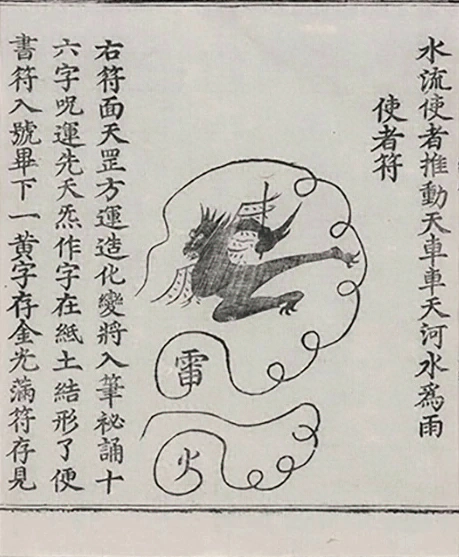 水流使者推動天車車天河水爲雨
使者符
雷
火
右符面天罡方運造化變將入筆祕誦十
六字呪運先天炁作字在紙土結形了便
書符入號畢下一黃字存金光滿符存見